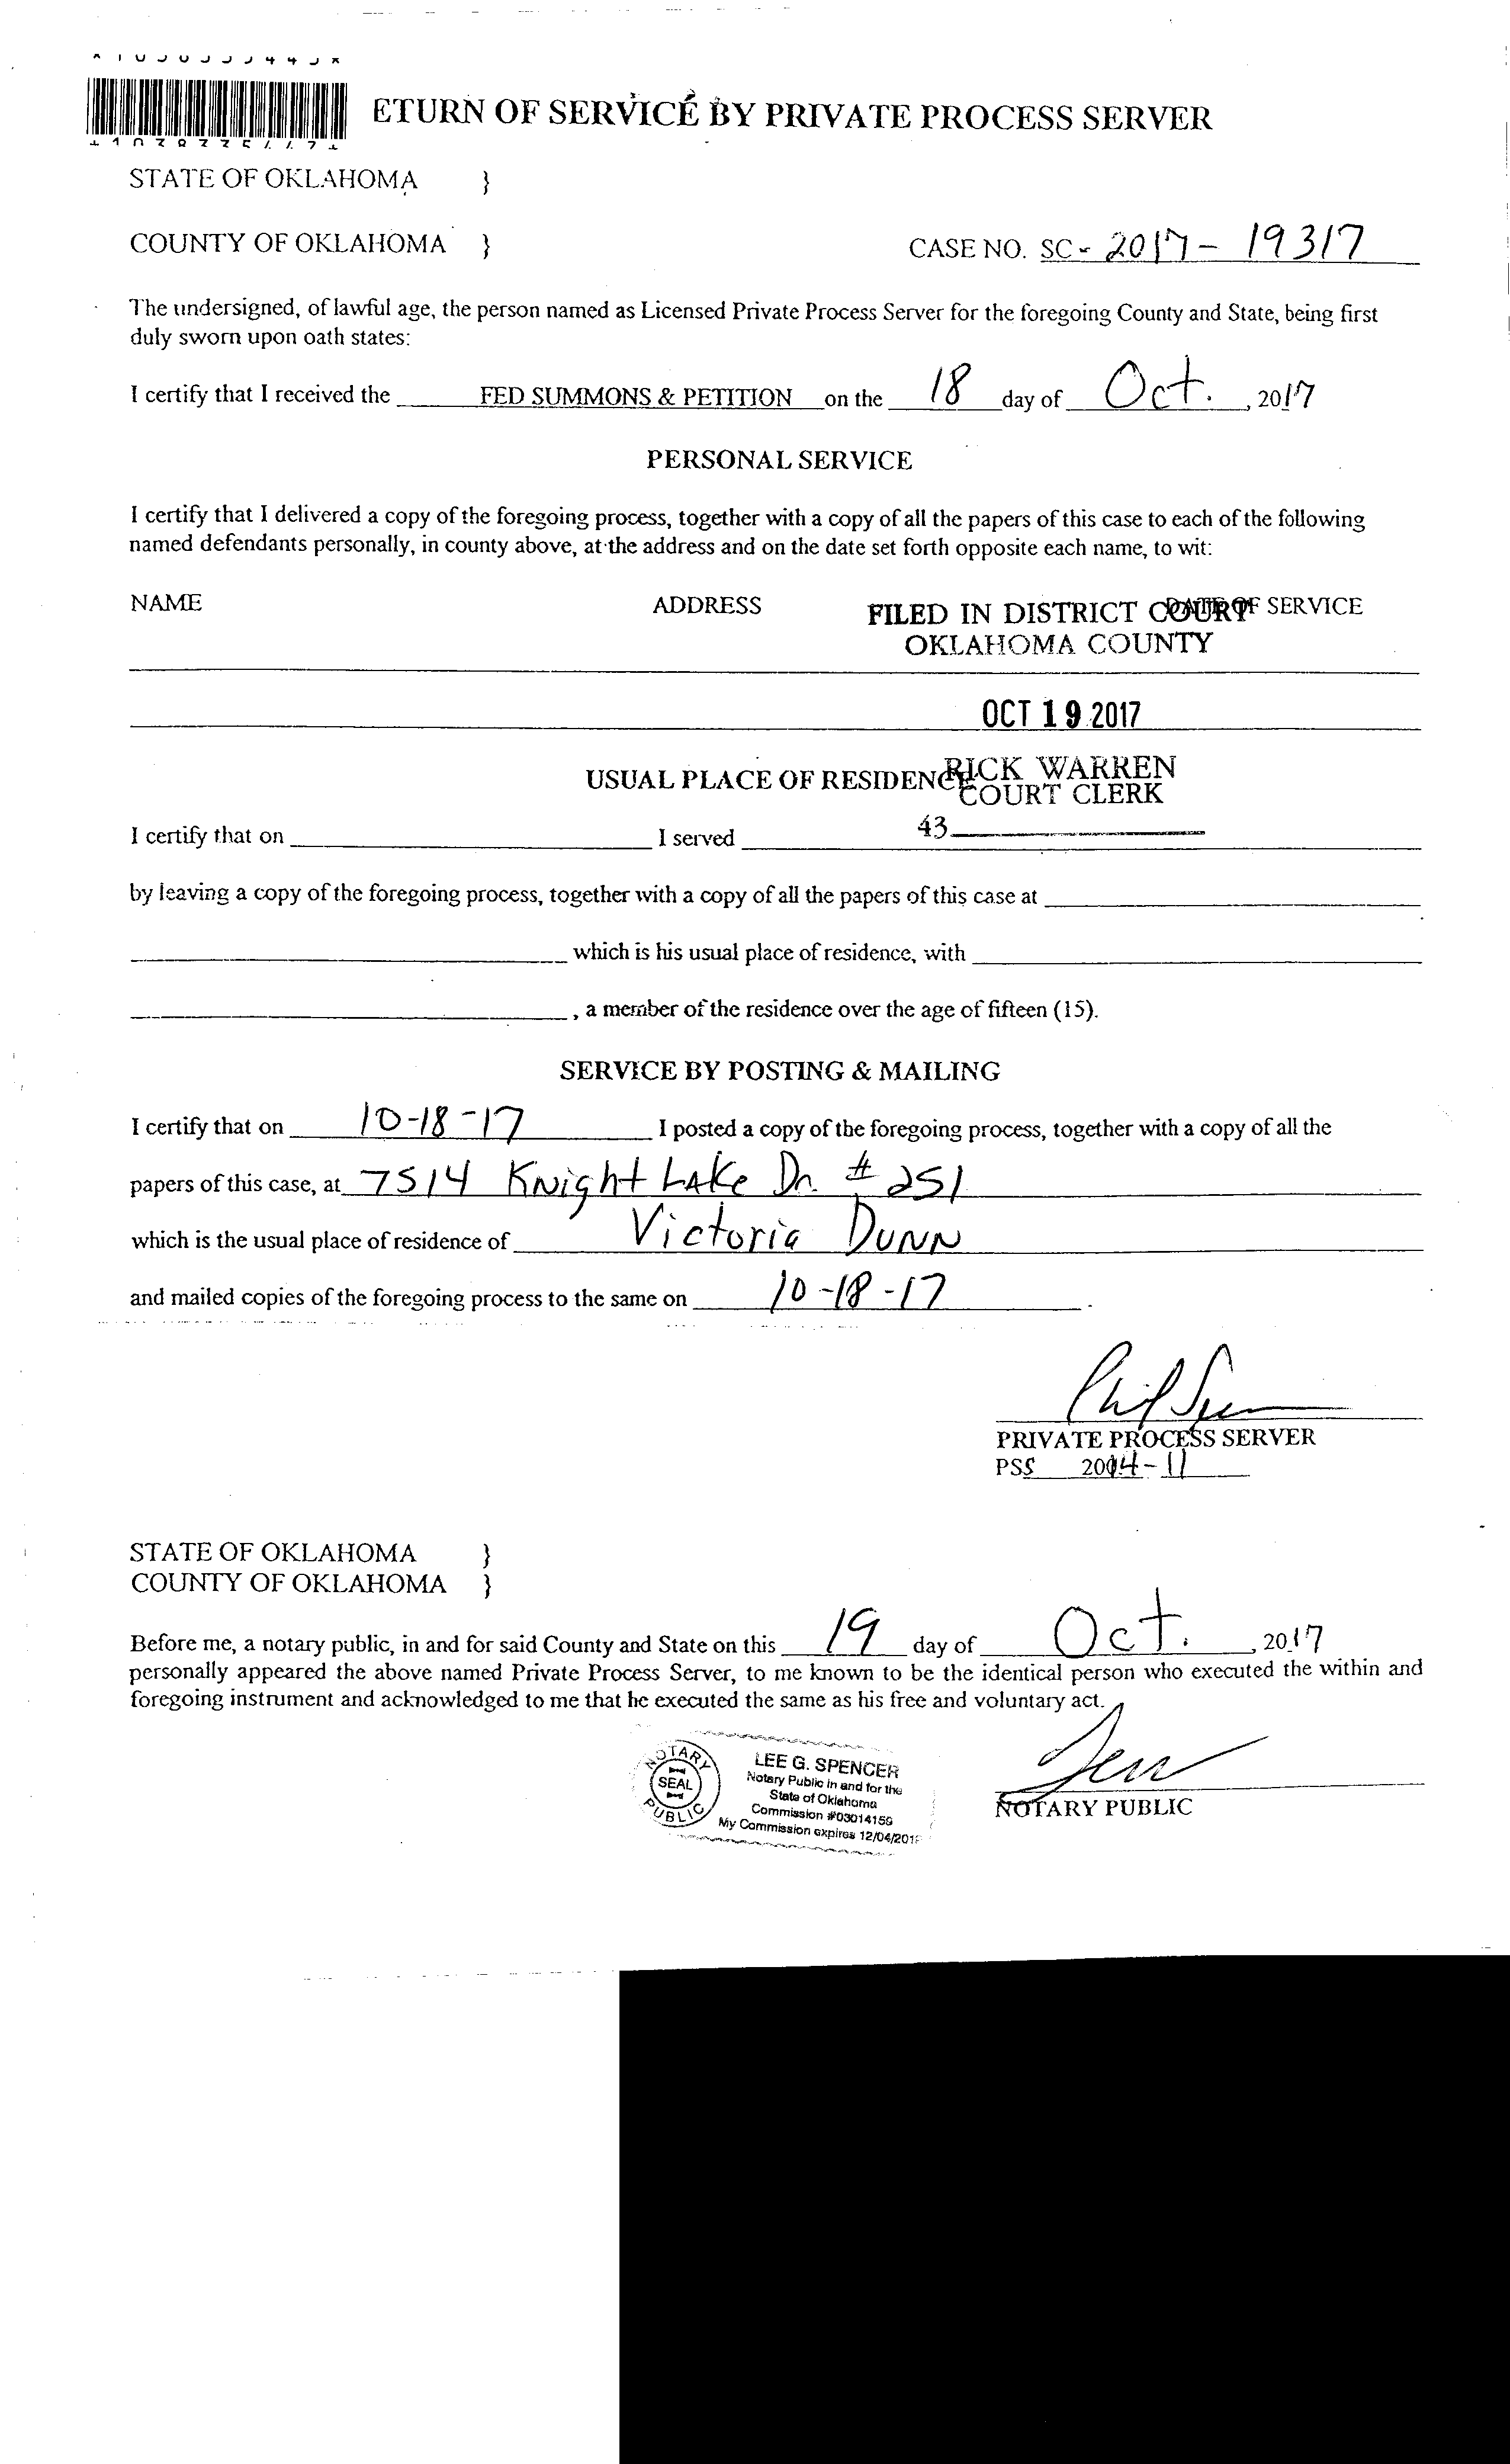 ETURN OF SERVICE BY PRIVATE PROCESS SERVER
STATE OF OKLAHOMA }
COUNTY OF OKLAHOMA } CASE NO. SC- 2017- 19317
The undersigned, of lawful age, the person named as Licensed Private Process Server for the foregoing County and State, being first
duly sworn upon oath states:
I certify that I received the FED SUMMONS & PETITION on the 18 day of Oct. , 2017
PERSONAL SERVICE
I certify that I delivered a copy of the foregoing process, together with a copy of all the papers of this case to each of the following
named defendants personally, in county above, at the address and on the date set forth opposite each name, to wit:
NAME ADDRESS DATE OF SERVICE
FILED IN DISTRICT COURT
OKLAHOMA COUNTY
OCT 19 2017
USUAL PLACE OF RESIDENCE
RICK WARREN
COURT CLERK
43
I certify that on I served
by leaving a copy of the foregoing process, together with a copy of all the papers of this case at
which is his usual place of residence, with
, a member of the residence over the age of fifteen (15).
SERVICE BY POSTING & MAILING
I certify that on 10-18-17 I posted a copy of the foregoing process, together with a copy of all the
papers of this case, at 7514 Knight Lake Dr. # 251
which is the usual place of residence of Victoria Dunn
and mailed copies of the foregoing process to the same on 10-18-17 .
PRIVATE PROCESS SERVER
PSS 2004-11
STATE OF OKLAHOMA }
COUNTY OF OKLAHOMA }
Before me, a notary public, in and for said County and State on this 19 day of Oct. , 2017
personally appeared the above named Private Process Server, to me known to be the identical person who executed the within and
foregoing instrument and acknowledged to me that he executed the same as his free and voluntary act.
NOTARY
SEAL
PUBLIC
LEE G. SPENCER
Notary Public in and for the
State of Oklahoma
Commission #03014159
My Commission expires
NOTARY PUBLIC